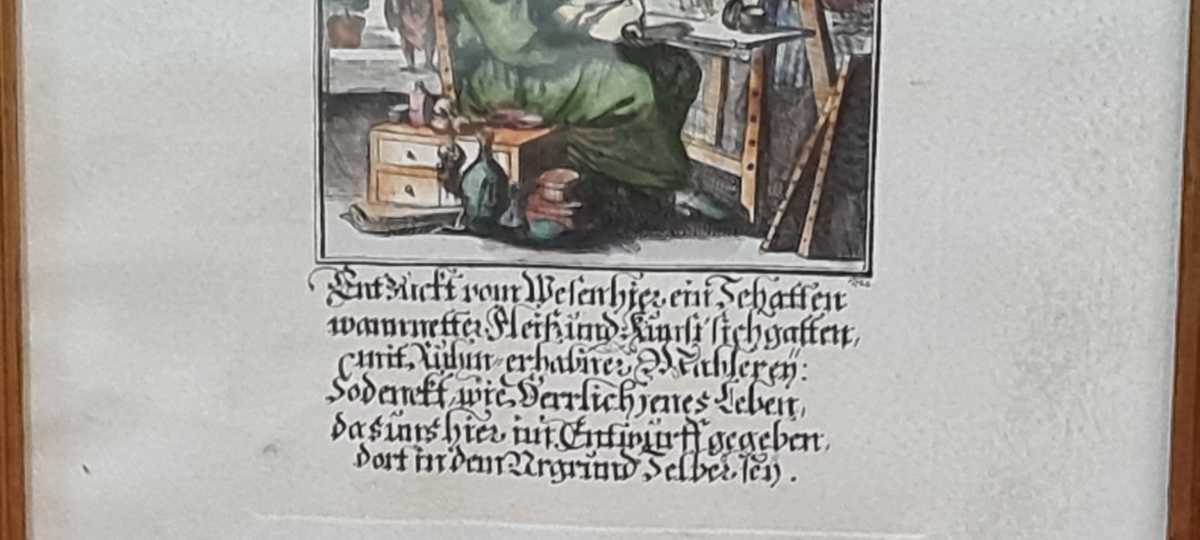 Entzückt vom Wesen hier ein Schatten
wann netter Fleiß und Kunst sich gatten,
mit Ruhm-erhabner Mahlerey:
So denckt, wie Herrlich jenes Leben,
das uns hier im Entwurff gegeben,
dort in dem Urgrund Selber sey.